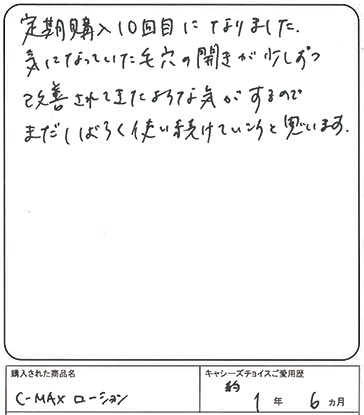 定期購入10回目になりました.
気になっていた毛穴の開きが少しずつ
改善されてきたような気がするので
まだしばらく使い続けていこうと思います.
購入された商品名
C-MAX ローション
キャシーズチョイスご愛用歴
約 1 年 6 カ月